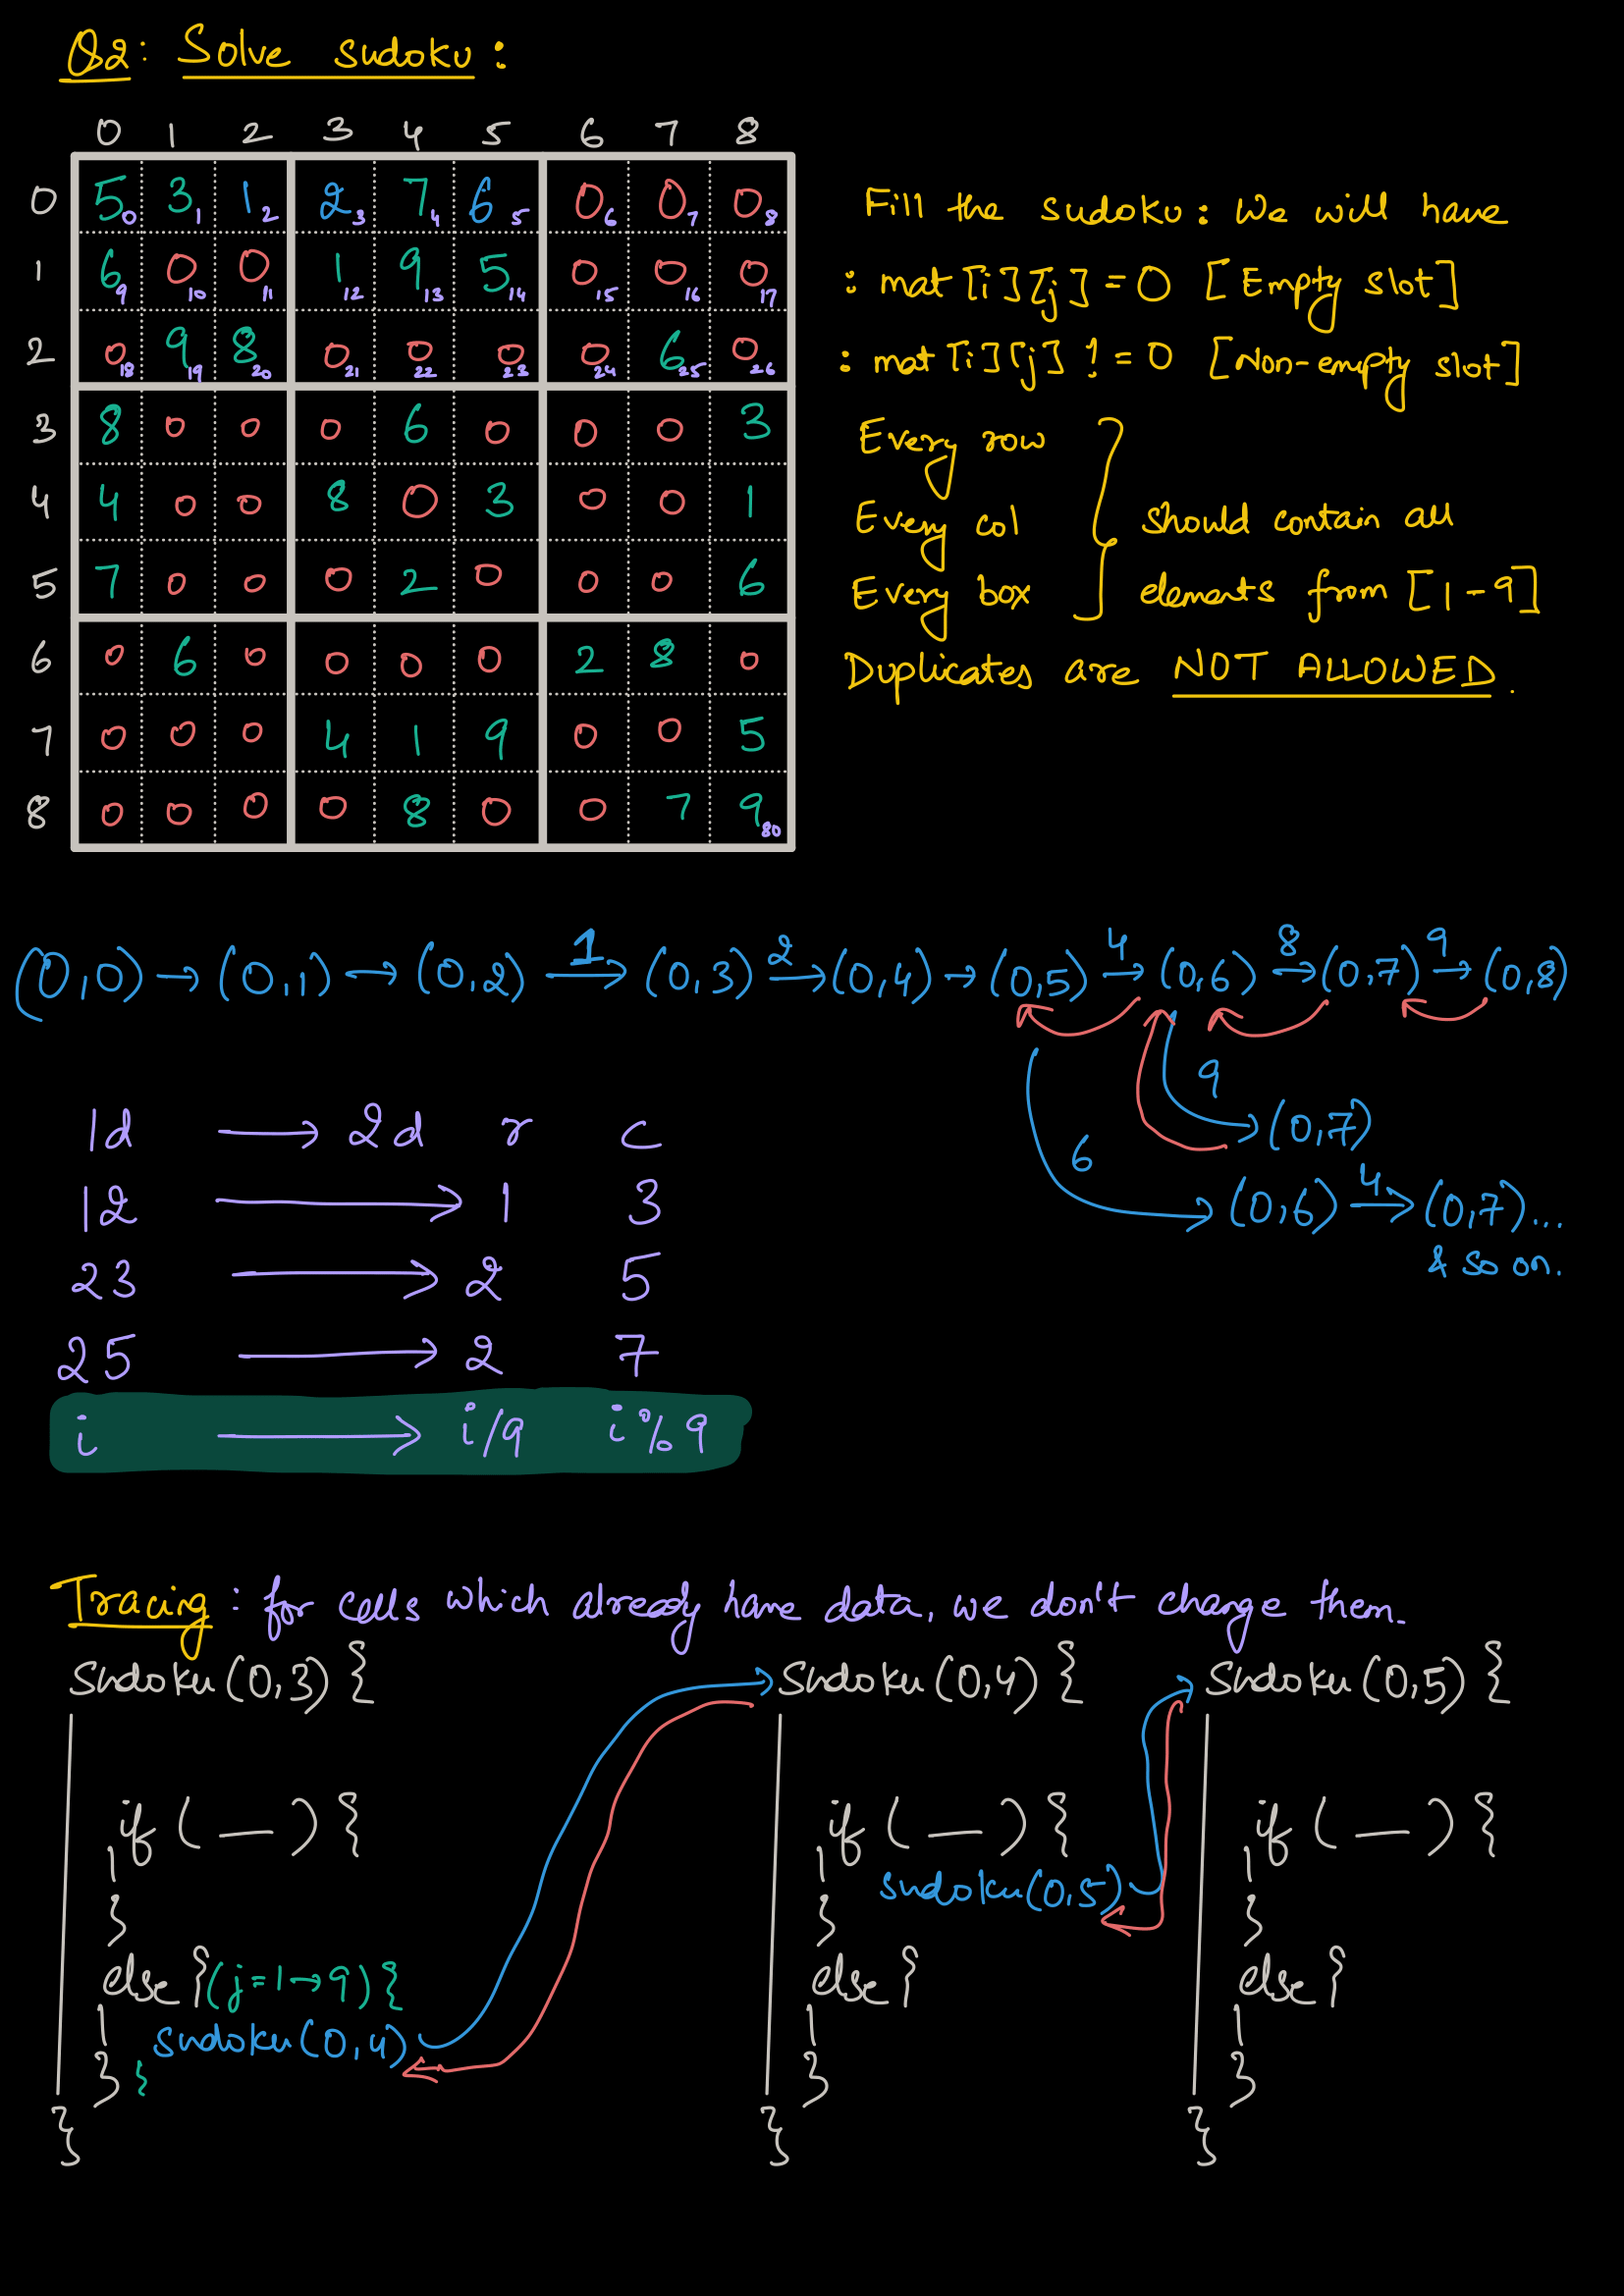 Q2: Solve sudoku:
0 1 2 3 4 5 6 7 8
0 5 0 3 1 1 2 2 3 7 4 6 5 0 6 0 7 0 8
1 6 9 0 10 0 11 1 12 9 13 5 14 0 15 0 16 0 17
2 0 18 9 19 8 20 0 21 0 22 0 23 0 24 6 25 0 26
3 8 0 0 0 6 0 0 0 3
4 4 0 0 8 0 3 0 0 1
5 7 0 0 0 2 0 0 0 6
6 0 6 0 0 0 0 2 8 0
7 0 0 0 4 1 9 0 0 5
8 0 0 0 0 8 0 0 7 9 80
Fill the sudoku: We will have
: mat[i][j] = 0 [Empty slot]
: mat[i][j] != 0 [Non-empty slot]
Every row
Every col
Every box
should contain all
elements from [1-9]
Duplicates are NOT ALLOWED.
(0,0) → (0,1) → (0,2) 1→ (0,3) 2→ (0,4) → (0,5) 4→ (0,6) 8→ (0,7) 9→ (0,8)
9 (0,7)
6 (0,6) 4→ (0,7)...
& so on.
1d → 2d r c
12 → 1 3
23 → 2 5
25 → 2 7
i → i/9 i%9
Tracing: for cells which already have data, we don't change them.
Sudoku(0,3) {
if (—) {
}
else {(j=1→9){
sudoku(0,4)
} }
}
Sudoku(0,4) {
if (—) {
sudoku(0,5)
}
else {
}
}
Sudoku(0,5) {
if (—) {
}
else {
}
}